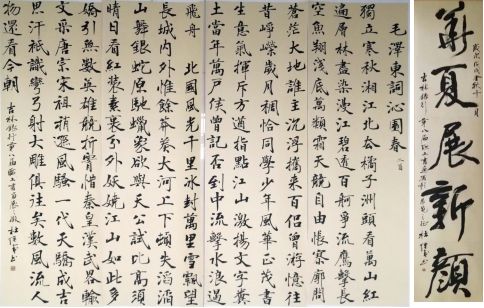 毛澤東詞沁園春 二首
獨立寒秋湘江北去橘子洲頭看萬山紅
遍層林盡染漫江碧透百舸爭流鷹擊長
空魚翔淺底萬類霜天競自由悵寥廓問
蒼茫大地誰主沉浮攜來百侶曾遊憶往
昔崢嶸歲月稠恰同學少年風華正茂書
生意氣揮斥方遒指點江山激揚文字糞
土當年萬戶侯曾記否到中流擊水浪遏
飛舟 北國風光千里冰封萬里雪飄望
長城内外惟餘莽莽大河上下頓失滔滔
山舞銀蛇原馳蠟象欲與天公試比高須
晴日看紅裝素裹分外妖嬈江山如此多
嬌引無數英雄競折腰惜秦皇漢武略輸
文采唐宗宋祖稍遜風騷一代天驕成吉
思汗祇識彎弓射大雕俱往矣數風流人
物還看今朝
吉林銀行第八屆職工書畫
華夏展新顏
吉林銀行第八屆職工書畫